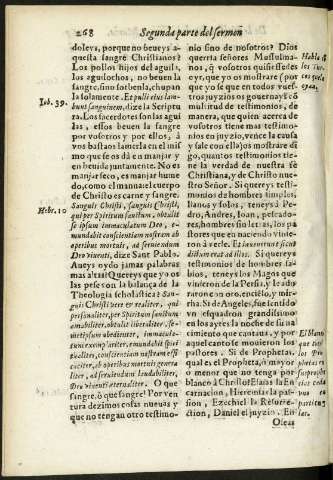 268 Segunda parte del sermon
doleys, porque no beueys a-
questa sangre Christianos?
Los pollos hijos del aguila,
los aguilochos, no beuen la
sangre, sino sorbenla, chupan
Iob. 39. la solamente. Et pulli eius lam-
bunt sanguinem, dize la Scriptu
ra. Los sacerdotes son las agui
las, essos beuen la sangre
por vosotros y por ellos, a
vos bastaos lamerla en el mis
mo que se os dà en manjar y
en beuida juntamente. No es
manjar seco, es manjar hume
do, como el manna: el cuerpo
de Christo es carne y sangre.
Sanguis Christi, Sanguis Christi,
Hebr. 10 qui per Spiritum sanctum, obtulit
se ipsum immaculatum Deo, e-
mundabit conscientiam nostram ab
operibus mortuis, ad seruiendum
Deo viuenti, dize Sant Pablo.
Aueys oydo jamas palabras
mas altas? Quereys que yo os
las pese con la balança de la
Theologia scholastica? San-
guis Christi verè et realiter, qui
personaliter, per Spiritum sanctum
amabiliter, obtulit liberaliter, se-
metipsum obedienter, immacula-
tum exemplariter, emundabit spiri
tualiter, conscientiam nostram effi
caciter, ab operibus mortuis genera
liter, ad seruiendum laudabiliter,
Deo viuenti eternaliter. O que
sangre, ò que sangre! Por ven
tura dezimos cosas nueuas y
que no tengan otro testimo-
nio sino de nosotros? Dios
querria señores Musulma-
nos, q̃ vosotros quisiessedes
oyr, que yo os mostrare (por
que yo se que en todos vues-
tros juyzios os gouernays cõ
multitud de testimonios, de
manera, que quien acerca de
vosotros tiene mas testimo-
nios en juyzio, vence la causa
y sale con ella) os mostrare di
go, quantos testimonios tie-
ne la verdad de nuestra fe
Christiana, y de Christo nues-
tro Señor. Si quereys testi-
monios de hombres simples,
llanos y solos, teneys à Pe-
dro, Andres, Ioan, pescado-
res, hombres sin letras, los pa
stores que en naciendo vinie-
ron à verle. Et inuenerunt sicut
dictum erat ad illos. Si quereys
testimonios de hombres sa-
bios, teneys los Magos que
vinieron de la Persia, y le ado
raron con oro, encienso, y mir-
ra. Si de Angeles, fue quando
vn esquadron grandissimo
en los ayres la noche de su na
cimiento que cantaua, y por
aquel canto se mouieron los
pastores. Si de Prophetas,
qual es el Propheta, ò mayor
o menor que no tenga por
blanco à Christo? Esaias la En
carnacion, Hieremias la pas-
sion, Ezechiel la Resurre-
ction, Daniel el juyzio. En
Oseas